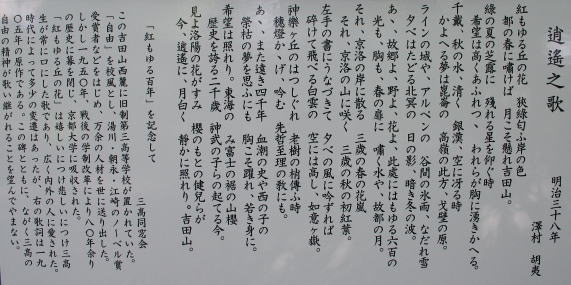 逍遥之歌
明治三十八年
澤村胡夷
紅もゆる丘の花 狭緑匂ふ岸の色
都の春に嘯けば 月こそ懸れ吉田山。
緑の夏の芝露に 残れる星を仰ぐ時
希望は高くあふれつゝ われらが胸に湧きかへる。
千載 秋の水 清く 銀漢、空に冴る時
かよへる夢は崑崙の 高嶺の此方、戈壁の原。
ラインの城や、アルペンの 谷間の氷雨、なだれ雪
夕べはたどる北冥の 日の影、暗き冬の波。
あゝ、故郷よ、野よ 花よ、此處にはもゆる六百の
光も、胸も、春の扉に 嘯く水や、故都の月。
それ、京洛の岸に散る 三歳の春の花嵐
それ、京洛の山に咲く 三歳の秋の初紅葉。
左手の書にうなづきて 夕べの風に吟ずれば
砕けて飛べる白雲の 空には高し、如意ヶ嶽。
神樂ヶ丘のはつしぐれ 老樹の梢傳ふ時
穂燈かゝげ、吟む 先哲至理の教にも。
あゝ、また遠き四千年 血潮の史や西の子の
榮枯の夢を思ふにも 胸こそ躍れ、若き身に。
希望は照れり。東海の み富士の裾の山櫻
歴史を誇る二千歳 神武の子らの起てる今。
見よ洛陽の花がすみ 櫻のもとの健兒らが
今、逍遥に、月白く 静かに照れり。吉田山。
「紅もゆる百年」を記念して
三高同窓会
この吉田山西麓に旧制第三高等学校が置かれていた。
「自由」を校風とし、湯川・朝永・江崎のノーベル賞
受賞者などをはじめ、万余の人材を世に送り出した。
しかし一九五〇年、戦後の学制改革により八〇年余り
の歴史に幕を閉じ、京都大学に吸収された。
「紅もゆる丘の花」は嬉しいにつけ悲しいにつけ三高
生が常に口にした歌であり、広く内外の人に愛された。
時代によって多少の変遷はあったが、右の歌詞は一九
〇五年の原作である。この碑とともに、ながく三高の
自由の精神が歌い継がれることを望んでやまない。